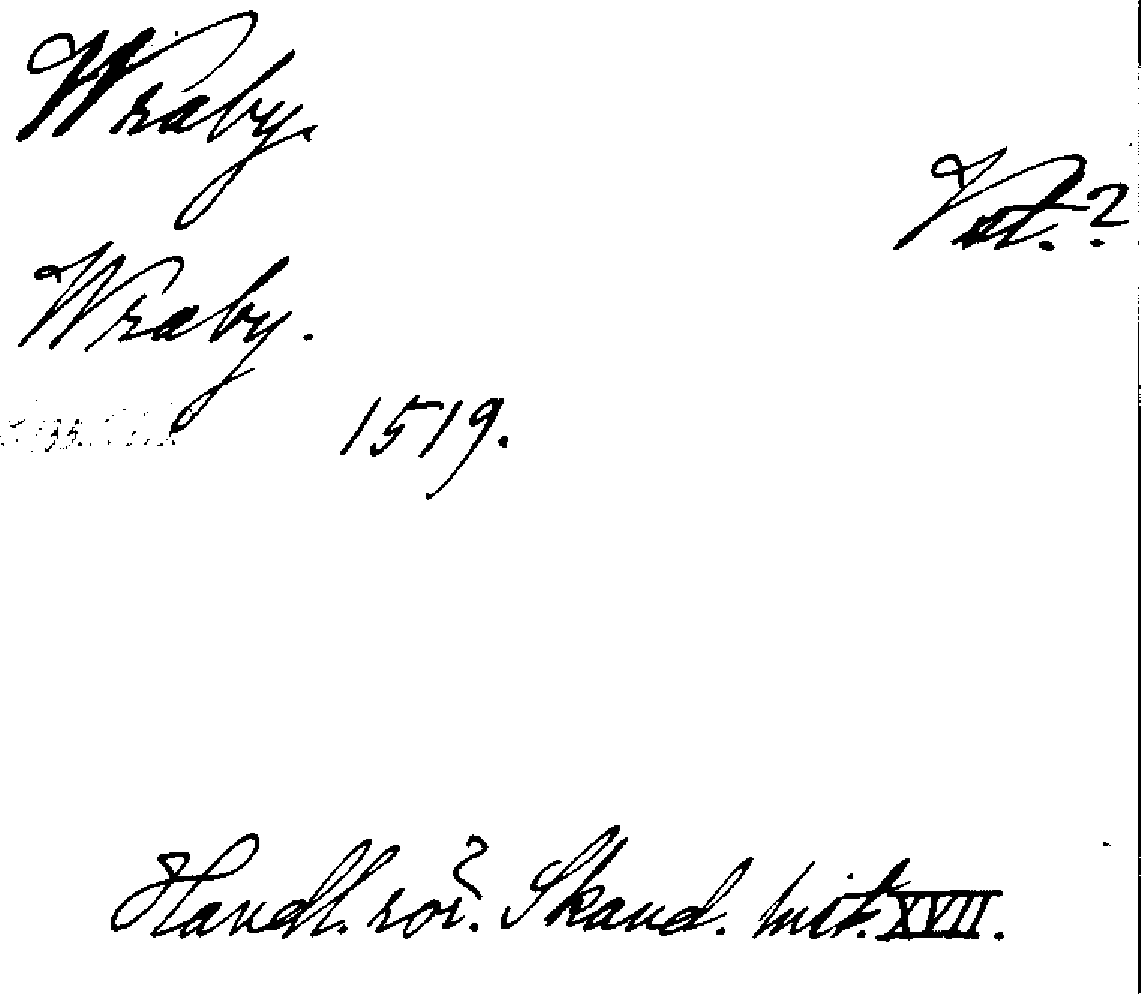 Wraby.
Vst. ?
Wraby.
1519.
Handl. rör. Skand. hist. XVII.